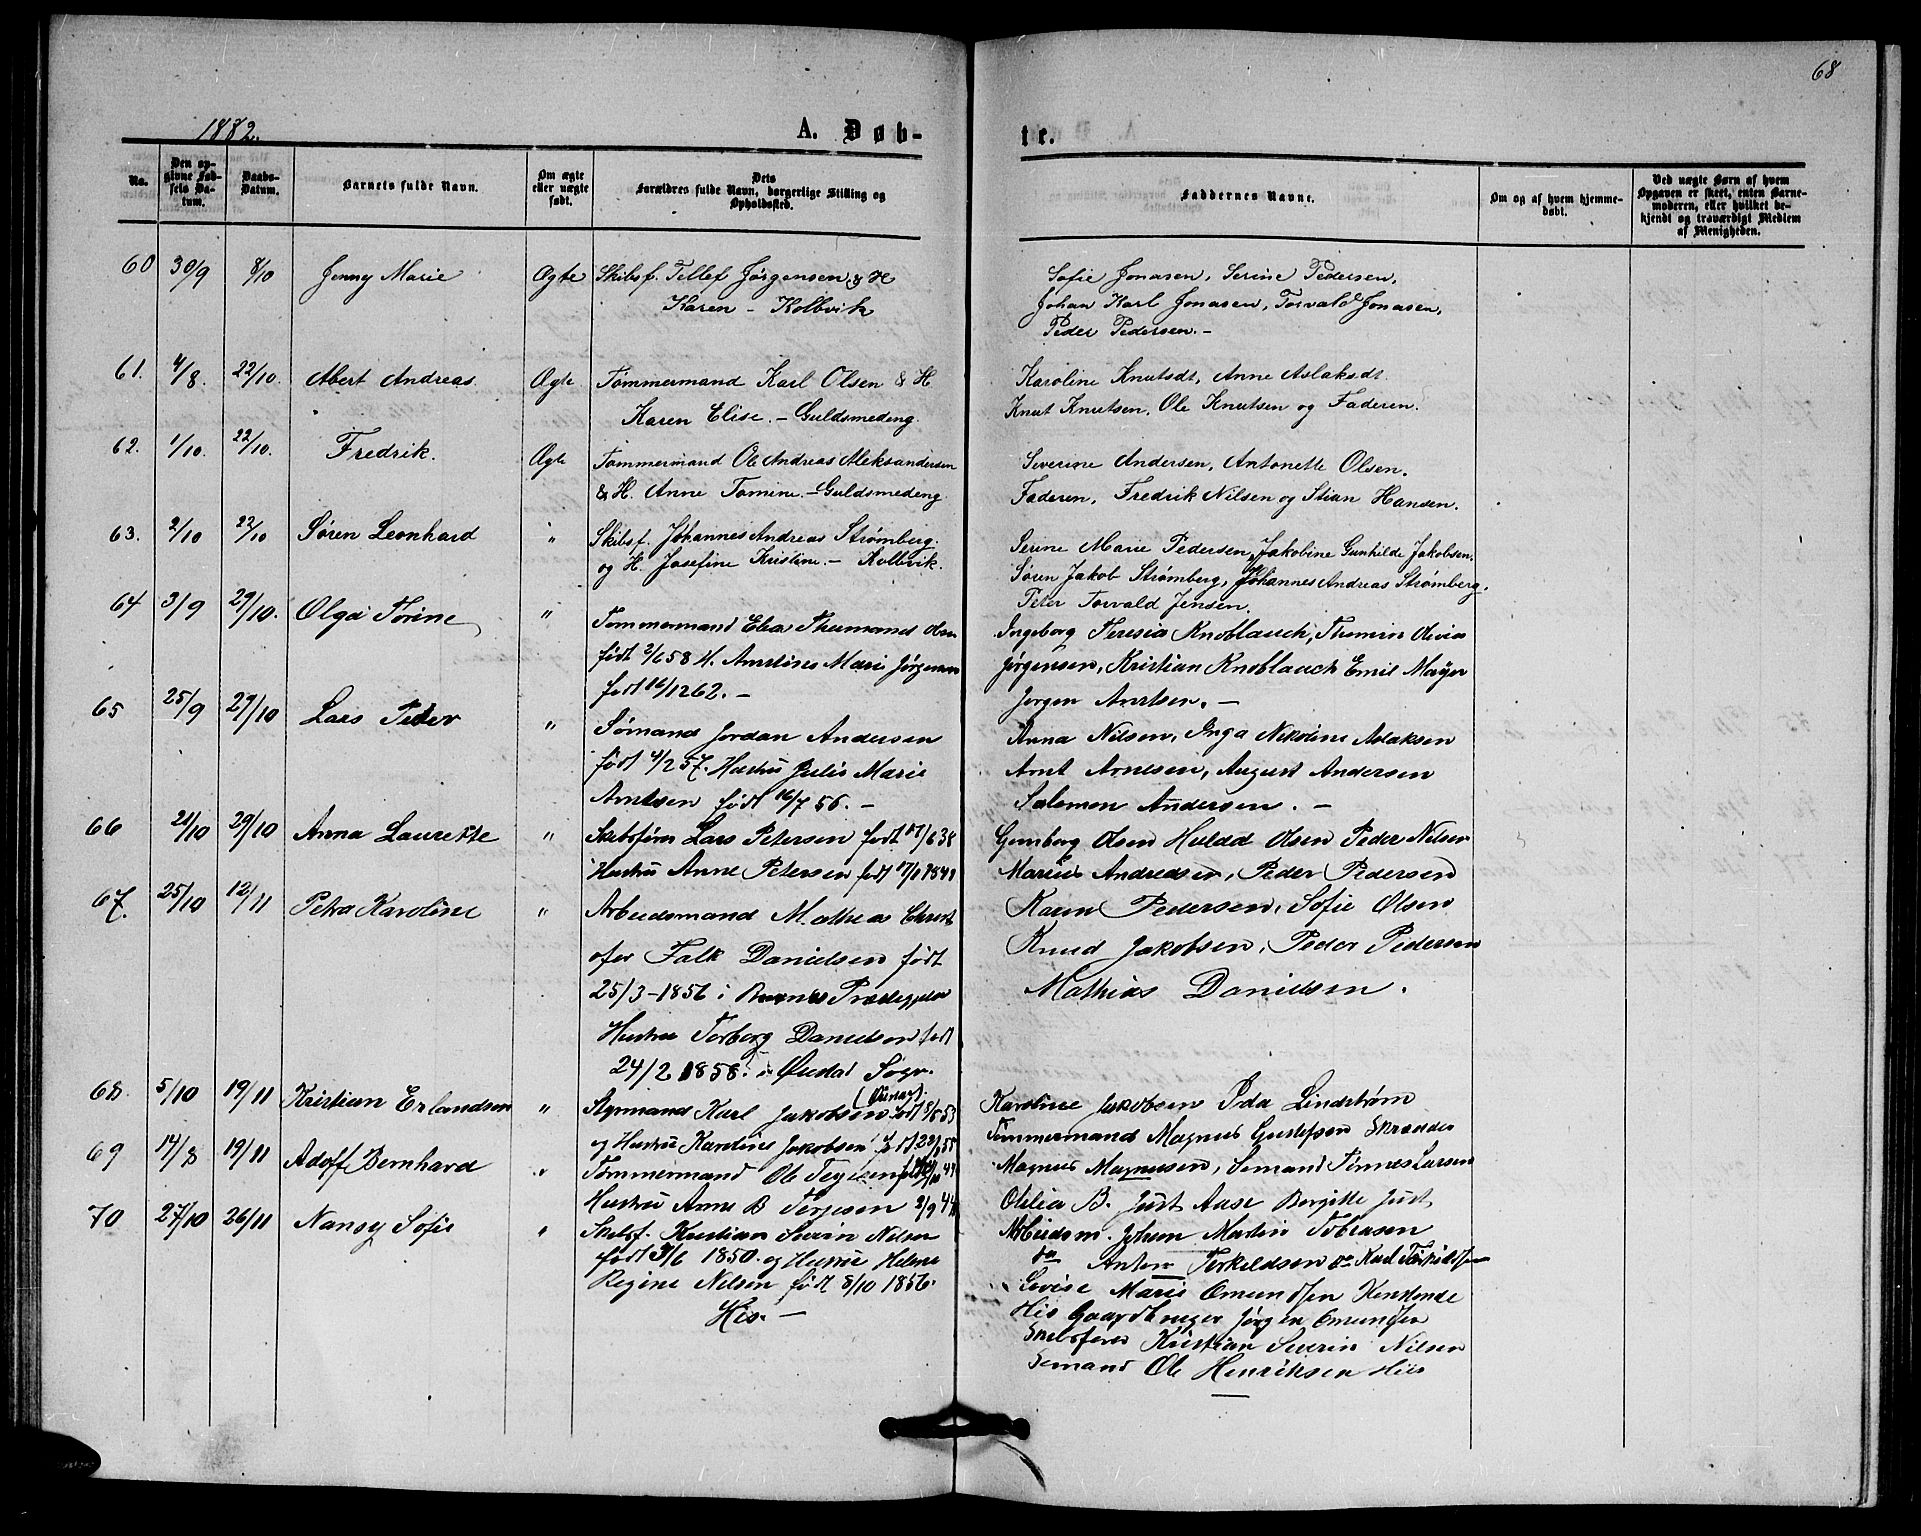 68
1882.
A. Døb-
te.
No.
Den opgivne Fødsels Datum.
Daabs-Datum.
Barnets fulde Navn.
Om ægte eller uægte født.
Dets Forældres fulde Navn, borgerlige Stilling og Opholdssted.
Faddernes Navne.
Om og af hvem hjemmedøbt.
Ved uægte Børn af hvem Opgaven er skeet, enten Barnemoderen, eller hvilket bekjendt og troværdigt Medlem af Menigheden.
60 30/9 8/10 Jenny Marie Ægte Skibsf. Tellef Jørgensen & H
Karen - Kolbvik
Sofie Jonasen, Serine Pedersen,
Johan Karl Jonasen, Torvald Jonasen,
Peder Pedersen. -
61. 4/8. 22/10. Abert Andreas. Ægte Tømmermand Karl Olsen & H
Karen Elise. - Guldsmedeng.
Karoline Knutsdt, Anne Aslaksdt.
Knut Knutsen, Ole Knutsen og Faderen.
62. 1/10. 22/10. Fredrik. Ægte Tømmermand Ole Andreas Aleksandersen
& H. Anne Tomine. - Guldsmedeng
Severine Andersen, Antonette Olsen,
Faderen, Fredrik Nilsen og Stian Hansen.
63. 2/10 22/10 Søren Leonhard " Skibsf. Johannes Andreas Strømberg.
og H. Josefine Kristine. - Kolbvik.
Serine Marie Pedersen, Jakobine Gunhilde Jakobsen,
Søren Jakob Strømberg, Johannes Andreas Strømberg.
Peter Torvald Jensen.
64 3/9 29/10. Olga Torine " Tømmermand Elias Thermanus Olsen
født 2/6 58 H. Amtine Marie Jørgensen
født 16/12 62. -
Ingeborg Teresia Knoblauch, Tomine Olivia
Jørgensen, Kristian Knoblauch Emil Mayer
Jørgen Arntsen. -
65 25/9 29/10 Lars Peder " Sømand Jordan Andersen
født 4/2 57. Hustru Julie Marie
Arntsen født 16/7 56. -
Anna Nilsen, Inga Nikoline Aslaksen
Arnt Arntsen, August Andersen
Salomon Andersen. -
66 21/10 29/10 Anna Laurette " Skibsfører Lars Petersen født 17/6 38
Hustru Anne Petersen født 17/1 1841
Gunborg Olsen Hulda Olsen Peder Nilsen
Marius Andreasen, Peder Pedersen
67. 25/10 12/11 Petra Karoline " Arbeidsmand Mathias Christ
ofer Falk Danielsen født
25/3-1856 i Præstegjeld
Hustru Torborg Danielsen født
24/2 1858. i Sogn.
Karen Pedersen, Sofie Olsen
Knud Jakobsen, Peder Pedersen
Mathias Danielsen.
68. 5/10 19/11 Kristian Erlandsen " Karl Jakobsen født 5/6 53
og Hustru Karoline Jakobsen født 55
Karoline Jakobsen Ida Lindstrøm
Tømmermand Magnus Gustafsen Skrædder
69 14/8 19/11 Adoff Bernhard " Tømmermand Ole Terjesen født
Hustru Anne B Terjesen 2/9 44
Magnus Magnusen, Sømand Tønnes Larsen
Otilia B. Just Aase Bergitte Just
70 27/10 26/11 Nansy Sofie " Skibsf. Kristian Severin Nilsen
født 3/6 1850. og Hustru Helene
Regine Nilsen født 8/10 1856.
His. -
Arbeidsm. Johan Martin Tobiasen
do Anton Terkeldsen do Karl Terkeldsen
Lovise Marie Omundsen
His Gaardbruger Jørgen Omundsen
Skibsfører Kristian Severin Nilsen
Sømand Ole Henriksen His